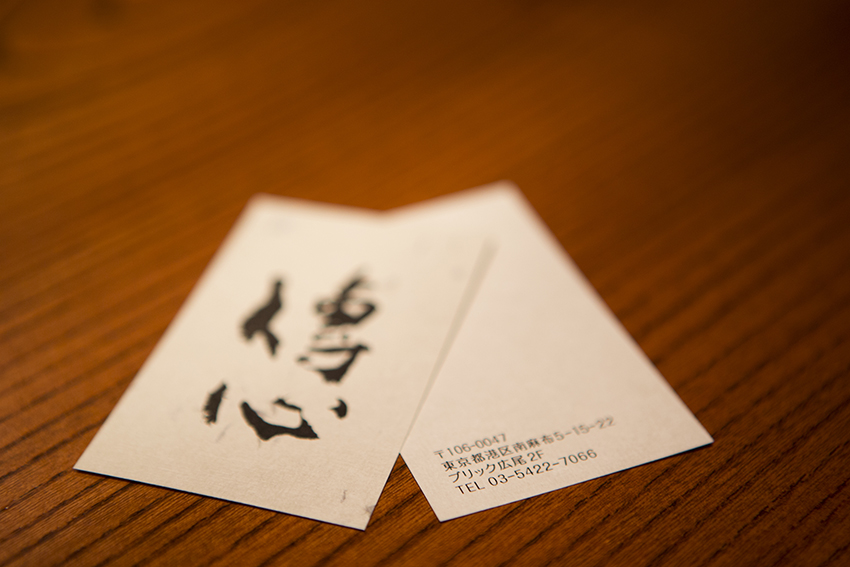 〒106-0047
東京都港区南麻布5-15-22
ブリック広尾2F
TEL 03-5422-7066